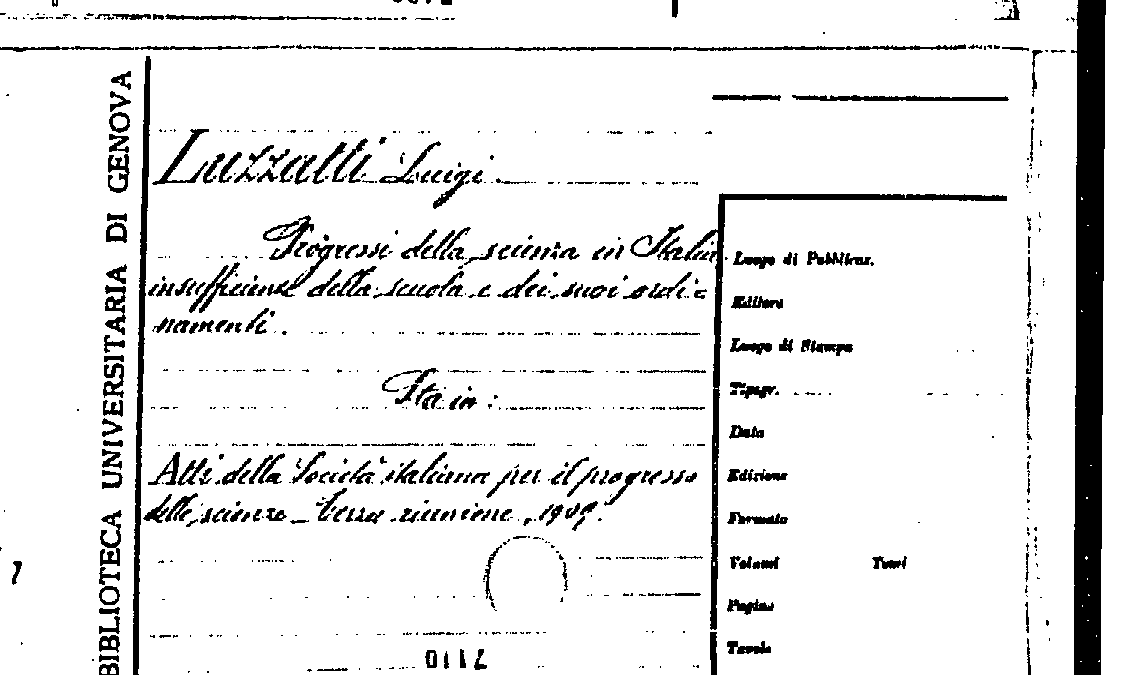 BIBLIOTECA UNIVERSITARIA DI GENOVA
Luzzatti Luigi.
Progressi della scienza in Italia
insufficienze della scuola e dei suoi ordi=
namenti.
Sta in:
Atti della Società italiana per il progresso
delle scienze _ terza riunione, 1909.
Luogo di Pubblicaz.
Editore
Luogo di Stampa
Tipogr.
Data
Edizione
Formato
Volumi Tomi
Pagine
Tavole